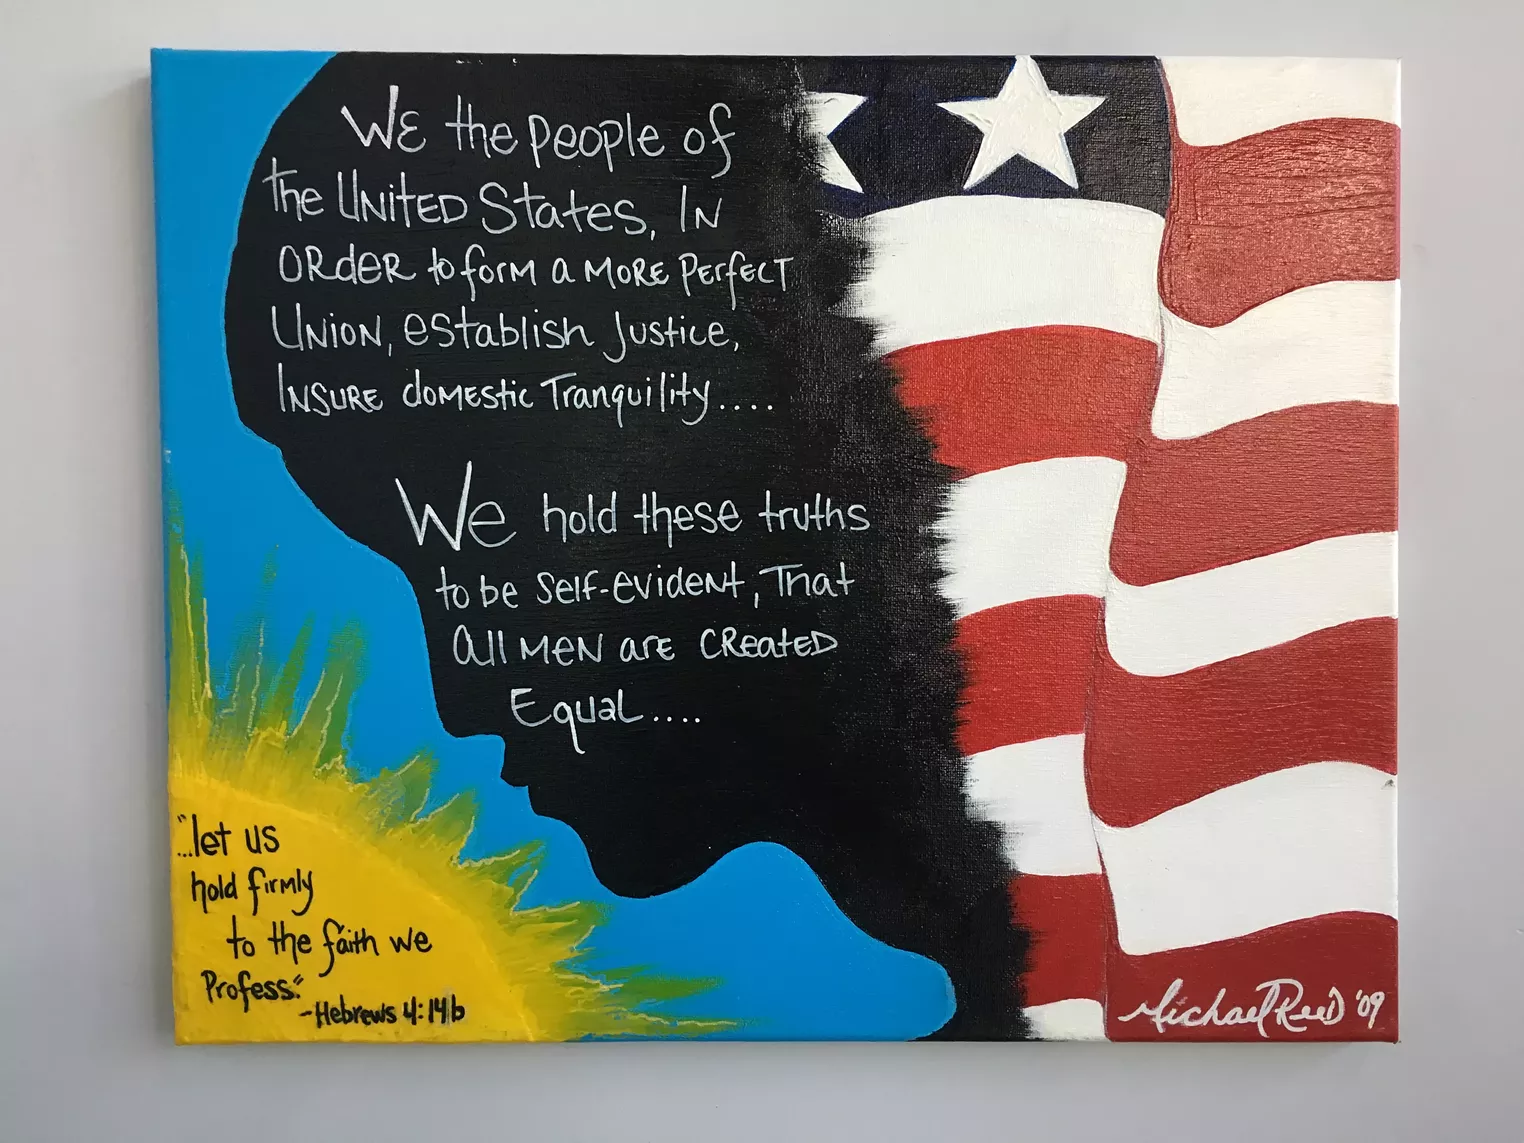 We the people of
the United States, In
order to form a more perfect
Union, establish Justice,
Insure domestic Tranquility....
We hold these truths
to be self-evident, That
all men are created
Equal....
"...let us
hold firmly
to the faith we
Profess."
-Hebrews 4:14b
Michael Reed '09